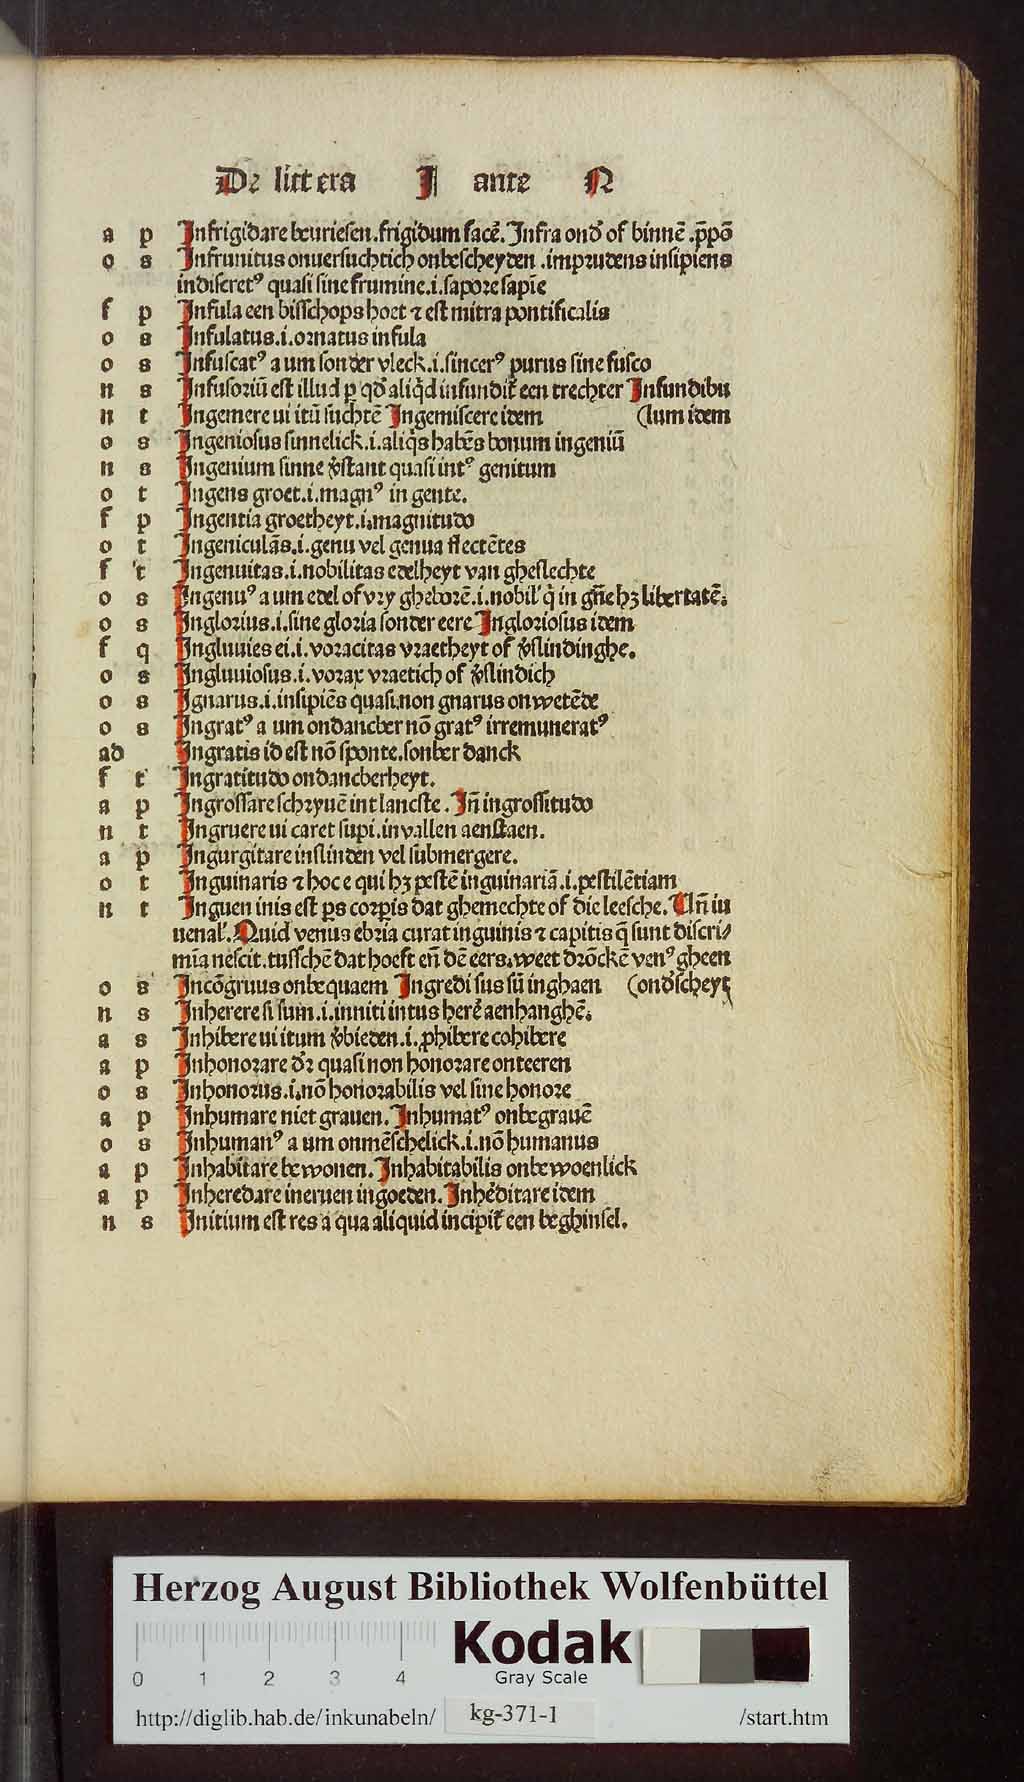 De littera I ante N
a p Infrigidare veruriesen.frigidum facē. Infra onđ of binnē .p̄pō
o s Infrunitus onuersuchtich onbescheyden .imprudens insipiens
indiscretꝰ quasi sine frumine.i.sapore sapīe
f p Infula een bisschops hoet ⁊ est mitra pontificalis
o s Infulatus.i.ornatus infula
o s Infuscatꝰ a um sonder vleck.i.sincerꝰ purus sine fusco
n s Infusoriū est illud ꝑ qđ aliq̇d infundit᷑ een trechter Infundibu
n t Ingemere ui itū suchtē Ingemiscere idem (lum idem
o s Ingeniosus sinnelick.i.aliq̇s habēs bonum ingeniū
n s Ingenium sinne v̓stant quasi intꝰ genitum
o t Ingens groet.i.magnꝰ in gente.
f p Ingentia groetheyt.i.magnitudo
o t Ingeniculās.i.genu vel genua flectētes
f t Ingenuitas.i.nobilitas edelheyt van gheslechte
o s Ingenuꝰ a um edel of vry gheborē.i.nobil' q̇ in gn̄e hꝫ libertatē.
o s Inglorius.i.sine gloria sonder eere Ingloriosus idem
f q Ingluuies ei.i.voracitas vraetheyt of v̓slindinghe.
o s Ingluuiosus.i.vorax vraetich of v̓slindich
o s Ignarus.i.insipiēs quasi.non gnarus onwetēde
o s Ingratꝰ a um ondancber nō gratꝰ irremuneratꝰ
ad Ingratis id est nō sponte.sonber danck
f t Ingratitudo ondancberheyt.
a p Ingrossare schryuē int lancste. In̄ ingrossitudo
n t Ingruere ui caret supi.invallen aenstaen.
a p Ingurgitare inslinden vel submergere.
o t Inguinaris ⁊ hoc e qui hꝫ pestē inguinariā.i.pestilētiam
n t Inguen inis est ꝑs corꝑis dat ghemechte of die leesche. Un̄ iu
uenal'. Quid venus ebria curat inguinis ⁊ capitis q̄ sunt discri/
mia nescit.tusschē dat hoeft en̄ dē eers.weet drōckē venꝰ gheen
o s Incōgruus onbequaem Ingredi sus sū inghaen (onđscheyt
n s Inherere si sum.i.inniti intus herē aenhanghē.
a s Inhibere ui itum v̓bieden.i.ꝓhibere cohibere
a p Inhonorare đr quasi non honorare onteeren
o s Inhonorus.i.nō honorabilis vel sine honore
a p Inhumare niet grauen. Inhumatꝰ onbegrauē
o s Inhumanꝰ a um onmēschelick.i.nō humanus
a p Inhabitare bewonen. Inhabitabilis onbewoenlick
a p Inheredare ineruen ingoeden. Inhēditare idem
n s Initium est res a qua aliquid incipit᷑ een beghinsel.
Herzog August Bibliothek Wolfenbüttel
Kodak
Gray Scale
0 1 2 3 4
http://diglib.hab.de/inkunabeln/ kg-371-1 /start.htm